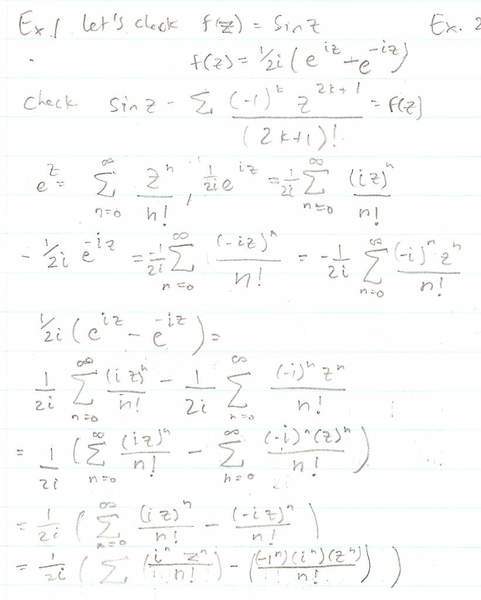 Ex. 1 Let's check f(z) = sin z Ex. 2
f(z) = 1/2i (e^{iz} + e^{-iz})
Check sin z - ∑ (-1)^k z^{2k+1} / (2k+1)! = f(z)
e^z = ∑_{n=0}^∞ z^n / n! , 1/2i e^{iz} = 1/2i ∑_{n=0}^∞ (iz)^n / n!
- 1/2i e^{-iz} = -1/2i ∑_{n=0}^∞ (-iz)^n / n! = - 1/2i ∑_{n=0}^∞ (-i)^n z^n / n!
1/2i (e^{iz} - e^{-iz}) =
1/2i ∑_{n=0}^∞ (iz)^n / n! - 1/2i ∑_{n=0}^∞ (-i)^n z^n / n!
= 1/2i (∑_{n=0}^∞ (iz)^n / n! - ∑_{n=0}^∞ (-i)^n (z)^n / n!)
= 1/2i (∑_{n=0}^∞ (iz)^n / n! - (-iz)^n / n!)
= 1/2i (∑ (i^n z^n / n!) - ((-1^n)(i^n)(z^n) / n!))